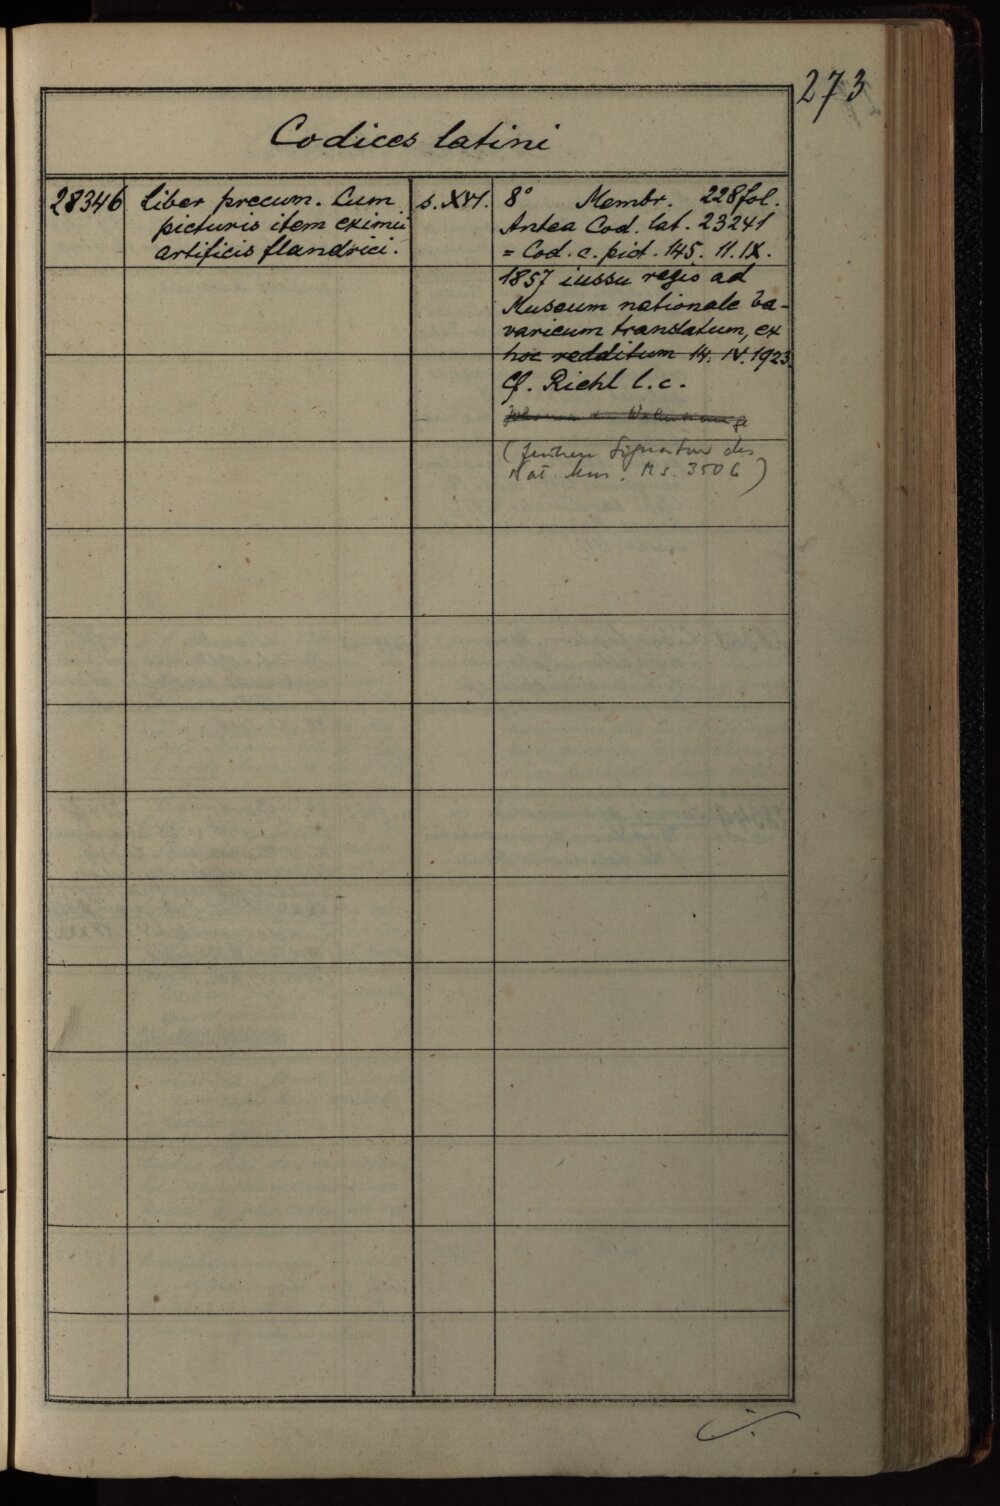 273
Codices latini
28346 Liber precum. Cum s. XVI. 8° Membr. 228 fol.
picturis item eximii Antea Cod. lat. 23241
artificis flandrici. = Cod. c. pict. 145. 11. IX.
1857 iussu regio ad
Museum nationale ba-
varicum translatum, ex
hoc redditum 14. IV. 1923.
Cf. Riehl l. c.
(frühere Signatur des
Nat. Mus. Ms. 3506)